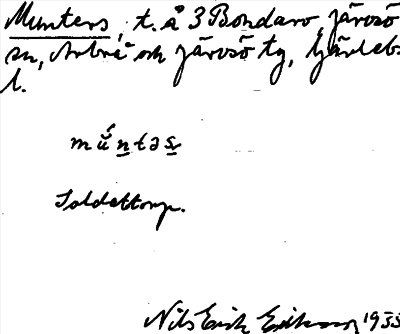 Munters, t. å 3 Bondarv, Järvsö
sn, Arbrå och Järvsö tg, Gävleb.
l.
múntəs
Soldattorp.
Nils Erik Eriksson 1935